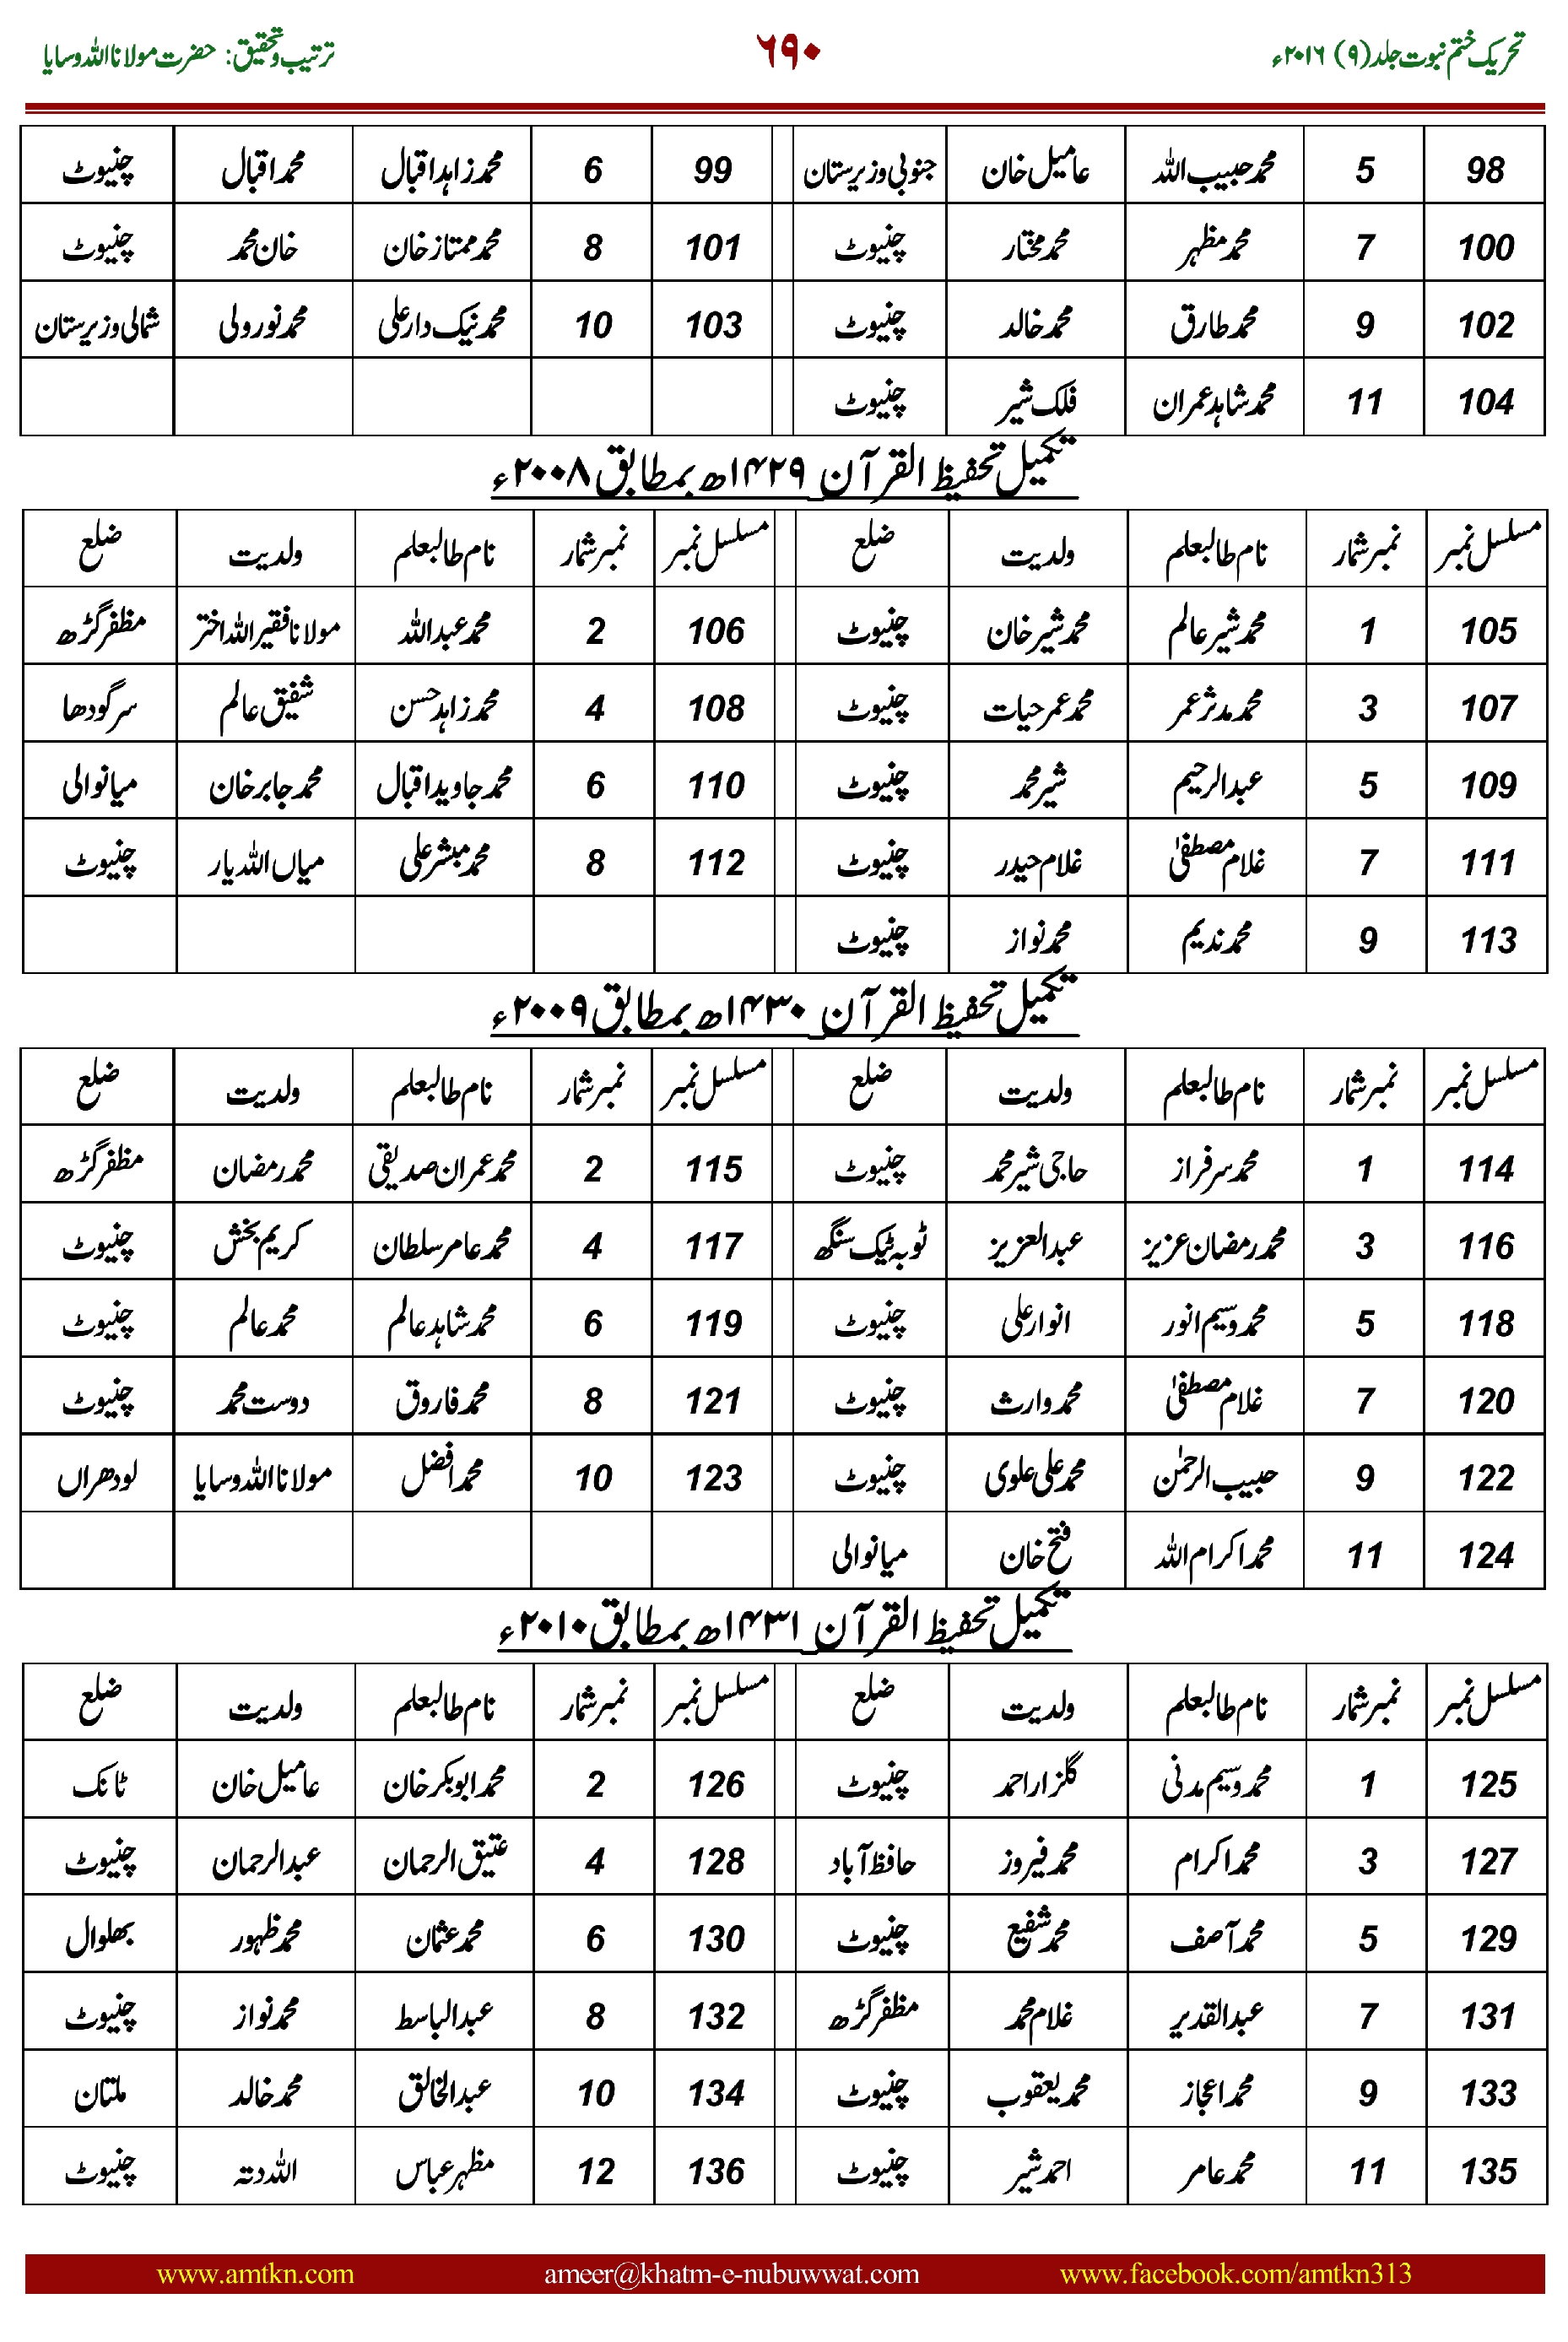 تحریک ختم نبوت جلد (۹) ۲۰۱۶ء ۶۹۰ ترتیب و تحقیق: حضرت مولانا اللہ وسایا
98 5 محمد حبیب اللہ عامیل خان جنوبی وزیرستان 99 6 محمد زاہد اقبال محمد اقبال چنیوٹ
100 7 محمد مظہر محمد مختار چنیوٹ 101 8 محمد ممتاز خان خان محمد چنیوٹ
102 9 محمد طارق محمد خالد چنیوٹ 103 10 محمد نیک دار علی محمد نور ولی شمالی وزیرستان
104 11 محمد شاہد عمران فلک شیر چنیوٹ
تکمیل تحفیظ القرآن ۱۴۲۹ھ بمطابق ۲۰۰۸ء
مسلسل نمبر نمبر شمار نام طالبعلم ولدیت ضلع مسلسل نمبر نمبر شمار نام طالبعلم ولدیت ضلع
105 1 محمد شیر عالم محمد شیر خان چنیوٹ 106 2 محمد عبداللہ مولانا فقیر اللہ اختر مظفر گڑھ
107 3 محمد مدثر عمر محمد عمر حیات چنیوٹ 108 4 محمد زاہد حسن شفیق عالم سرگودھا
109 5 عبدالرحیم شیر محمد چنیوٹ 110 6 محمد جاوید اقبال محمد جابر خان میانوالی
111 7 غلام مصطفیٰ غلام حیدر چنیوٹ 112 8 محمد مبشر علی میاں اللہ یار چنیوٹ
113 9 محمد ندیم محمد نواز چنیوٹ
تکمیل تحفیظ القرآن ۱۴۳۰ھ بمطابق ۲۰۰۹ء
مسلسل نمبر نمبر شمار نام طالبعلم ولدیت ضلع مسلسل نمبر نمبر شمار نام طالبعلم ولدیت ضلع
114 1 محمد سرفراز حاجی شیر محمد چنیوٹ 115 2 محمد عمران صدیقی محمد رمضان مظفر گڑھ
116 3 محمد رمضان عزیز عبدالعزیز ٹوبہ ٹیک سنگھ 117 4 محمد عامر سلطان کریم بخش چنیوٹ
118 5 محمد وسیم انور انوار علی چنیوٹ 119 6 محمد شاہد عالم محمد عالم چنیوٹ
120 7 غلام مصطفیٰ محمد وارث چنیوٹ 121 8 محمد فاروق دوست محمد چنیوٹ
122 9 حبیب الرحمٰن محمد علی علوی چنیوٹ 123 10 محمد افضل مولانا اللہ وسایا لودھراں
124 11 محمد اکرام اللہ فتح خان میانوالی
تکمیل تحفیظ القرآن ۱۴۳۱ھ بمطابق ۲۰۱۰ء
مسلسل نمبر نمبر شمار نام طالبعلم ولدیت ضلع مسلسل نمبر نمبر شمار نام طالبعلم ولدیت ضلع
125 1 محمد وسیم مدنی گلزار احمد چنیوٹ 126 2 محمد ابوبکر خان عامیل خان ٹانک
127 3 محمد اکرام محمد فیروز حافظ آباد 128 4 عتیق الرحمان عبدالرحمان چنیوٹ
129 5 محمد آصف محمد شفیع چنیوٹ 130 6 محمد عثمان محمد ظہور بھلوال
131 7 عبدالقدیر غلام محمد مظفر گڑھ 132 8 عبدالباسط محمد نواز چنیوٹ
133 9 محمد اعجاز محمد یعقوب چنیوٹ 134 10 عبدالخالق محمد خالد ملتان
135 11 محمد عامر احمد شیر چنیوٹ 136 12 مظہر عباس اللہ دتہ چنیوٹ
www.amtkn.com ameer@khatm-e-nubuwwat.com www.facebook.com/amtkn313